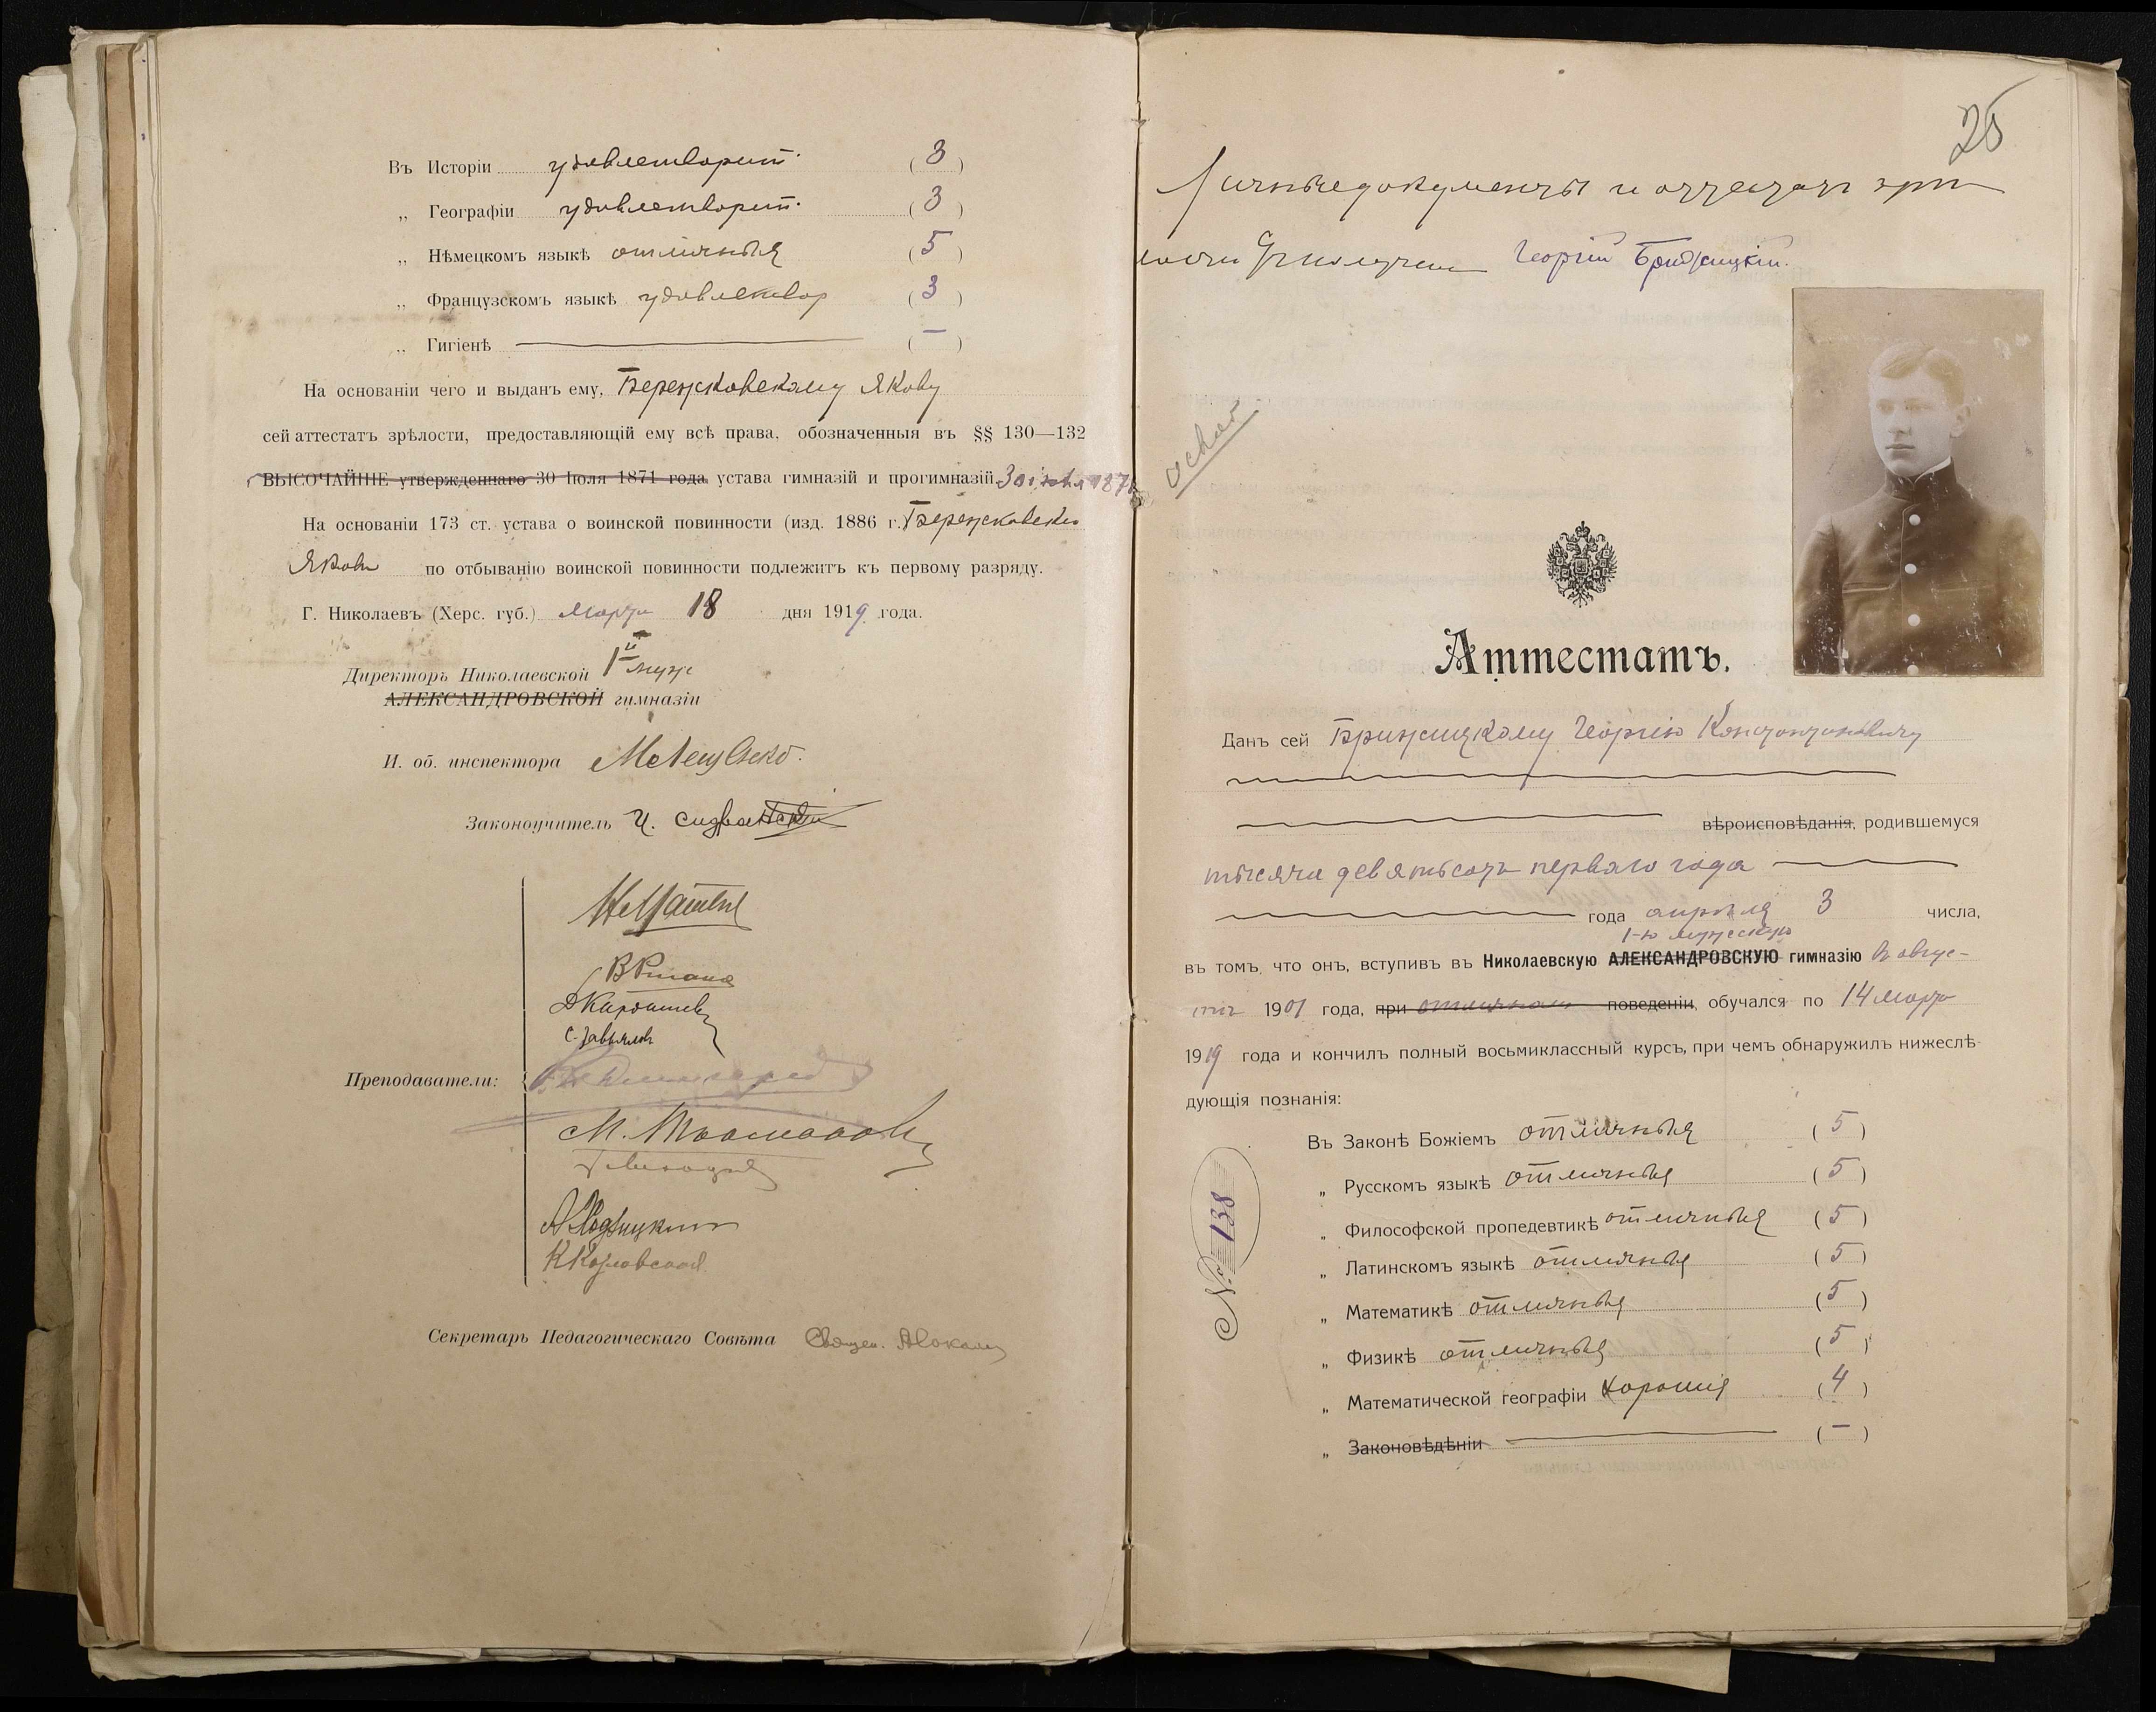 Въ Исторіи удовлетворит. (3)
„ Географіи удовлетворит. (3)
„ Нѣмецкомъ языкѣ отличныя (5)
„ Французскомъ языкѣ удовлетвор (3)
„ Гигіенѣ — (—)
На основаніи чего и выданъ ему, Бережковскому Якову
сей аттестатъ зрѣлости, предоставляющій ему всѣ права, обозначенныя въ §§ 130—132
ВЫСОЧАЙШЕ утвержденнаго 30 Іюля 1871 года устава гимназій и прогимназій 30 іюля 1871
На основаніи 173 ст. устава о воинской повинности (изд. 1886 г.) Бережковскій
Яковъ по отбыванію воинской повинности подлежитъ къ первому разряду.
Г. Николаевъ (Херс. губ.) Марта 18 дня 1919 года.
Директоръ Николаевской 1й муж
АЛЕКСАНДРОВСКОЙ гимназіи
И. об. инспектора
Законоучитель
С. Завьялов
Преподаватели:
Секретарь Педагогическаго Совѣта Священ.
25
Личные документы и аттестатъ зрѣ
лости получилъ Георгій Брижицкій.
Аттестатъ.
Данъ сей Брижицкому Георгію Константиновичу
вѣроисповѣданія, родившемуся
тысяча девятьсотъ перваго года
года апрѣля 3 числа,
1-ю мужскую
въ томъ, что онъ, вступивъ въ Николаевскую АЛЕКСАНДРОВСКУЮ гимназію въ авгус-
тѣ 1901 года, при отличномъ поведеніи, обучался по 14 марта
1919 года и кончилъ полный восьмиклассный курсъ, при чемъ обнаружилъ нижеслѣ-
дующія познанія:
Въ Законѣ Божіемъ отличныя (5)
„ Русскомъ языкѣ отличныя (5)
„ Философской пропедевтикѣ отличныя (5)
„ Латинскомъ языкѣ отличныя (5)
„ Математикѣ отличныя (5)
„ Физикѣ отличныя (5)
„ Математической географіи хорошія (4)
„ Законовѣдѣніи — (—)
№ 138